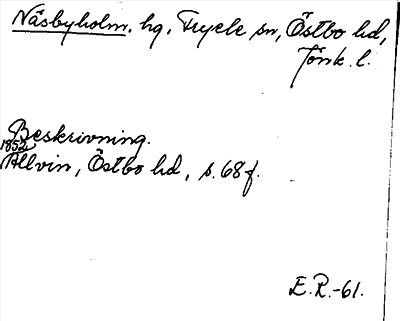 Näsbyholm. hg, Fryele sn, Östbo hd,
Jönk. l.
Beskrivning.
1852
Allvin, Östbo hd, s. 68 f.
E.R.-61.